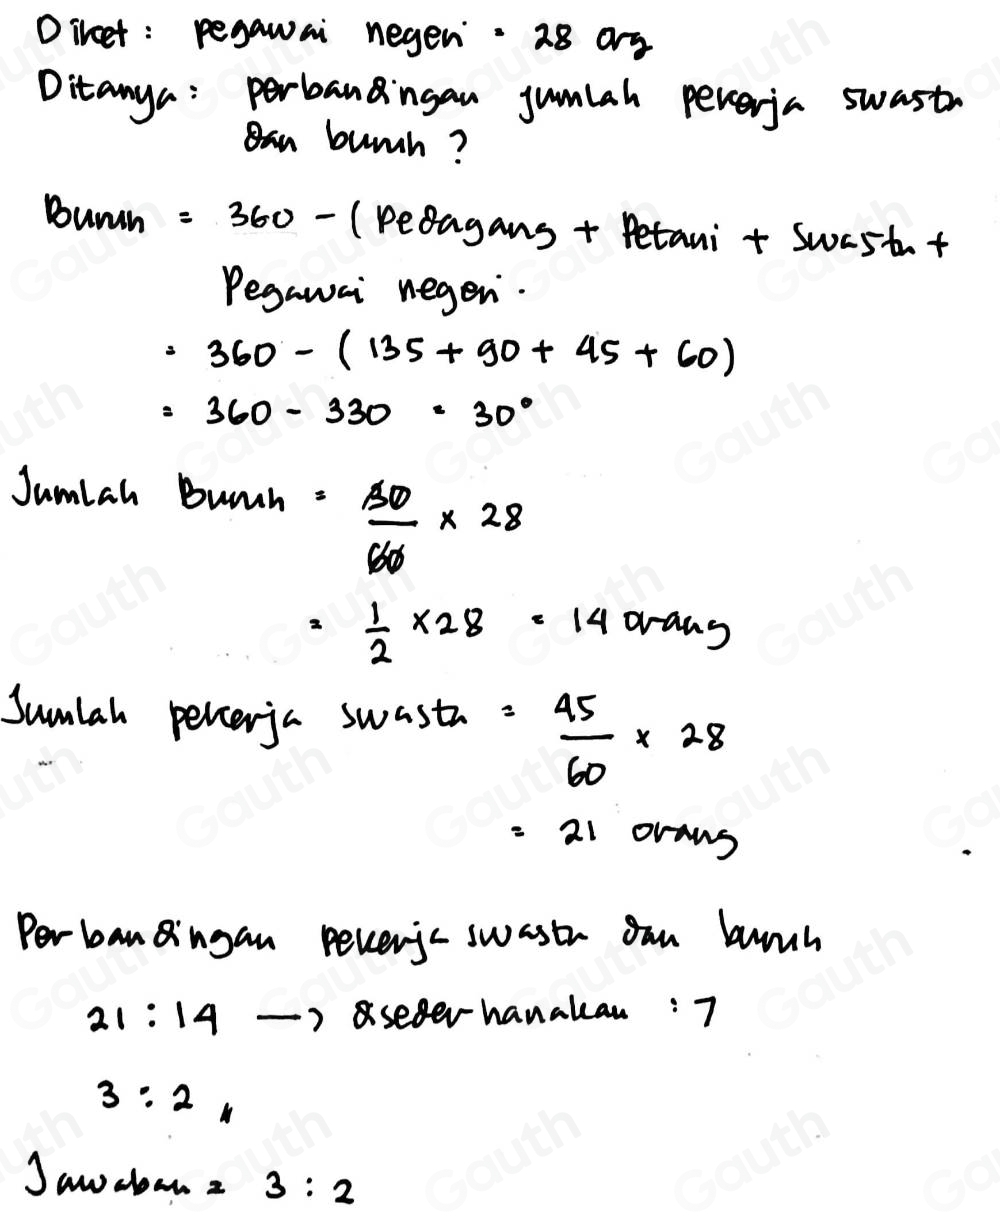 Diket : pegawai negeri = 28 org
Ditanya : perbandingan jumlah pekerja swasta
dan buruh ?
Buruh = 360 - ( Pedagang + Petani + Swasta +
Pegawai negeri .
= 360 - ( 135 + 90 + 45 + 60 )
= 360 - 330 = 30°
Jumlah Buruh = 30/60 x 28
= 1/2 x 28 = 14 orang
Jumlah pekerja swasta = 45/60 x 28
= 21 orang
Perbandingan pekerja swasta dan buruh
21 : 14 —> disederhanakan : 7
3 : 2 //
Jawaban = 3 : 2
Gauth